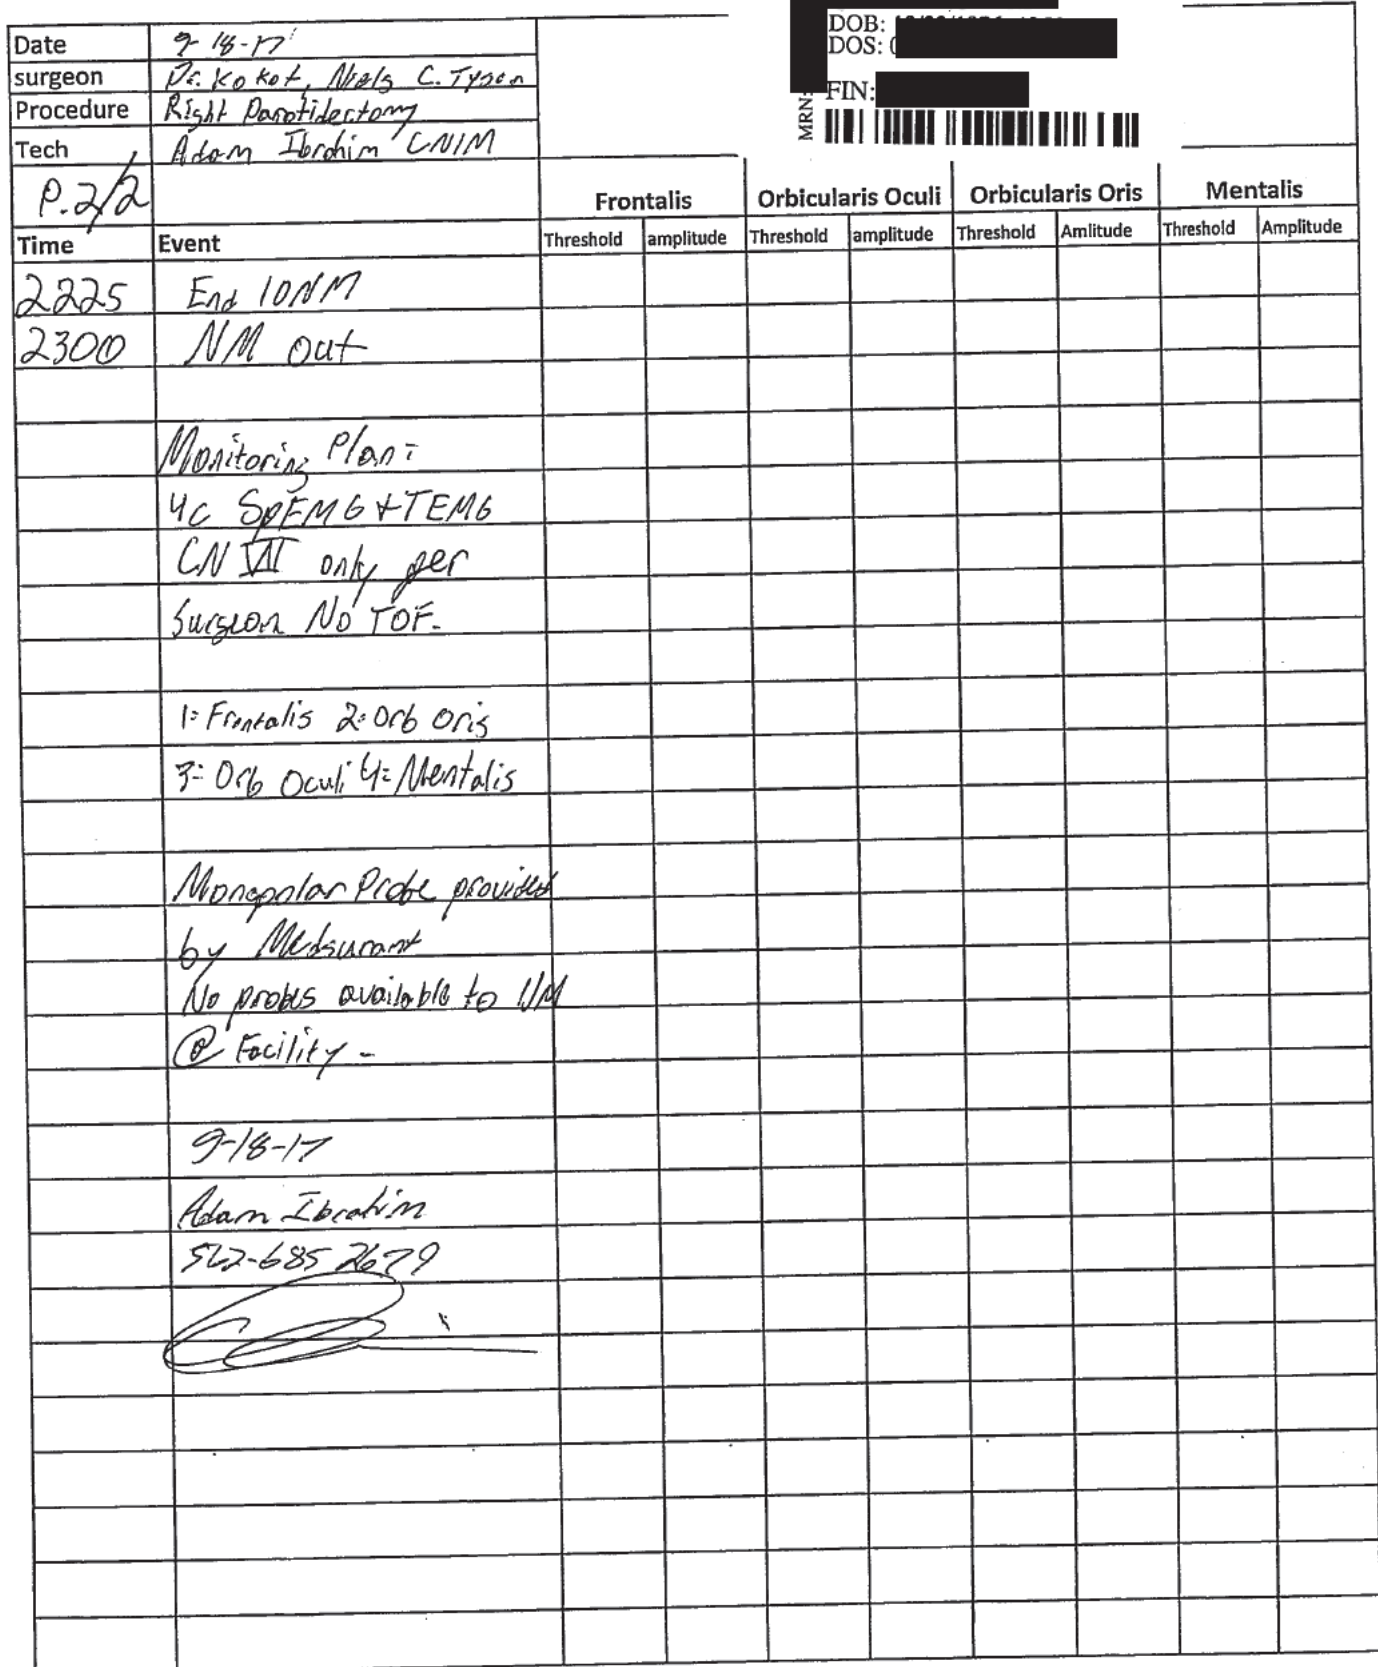 DOB:
DOS: 0
FIN:
MRN:
Date 9-18-17
surgeon Dr. Kokot, Niels C. Tyson
Procedure Right Parotidectomy
Tech Adam Ibrahim CNIM
P.2/2
Frontalis Orbicularis Oculi Orbicularis Oris Mentalis
Time Event Threshold amplitude Threshold amplitude Threshold Amlitude Threshold Amplitude
2225 End IONM
2300 NM out
Monitoring Plan:
4c SpEMG + TEMG
CN VII only per
Surgeon No TOF.
1= Frontalis 2= Orb Oris
3= Orb Oculi 4= Mentalis
Monopolar Probe provided
by Medsurant
No probes available to NM
@ Facility -
9-18-17
Adam Ibrahim
562-685 2679